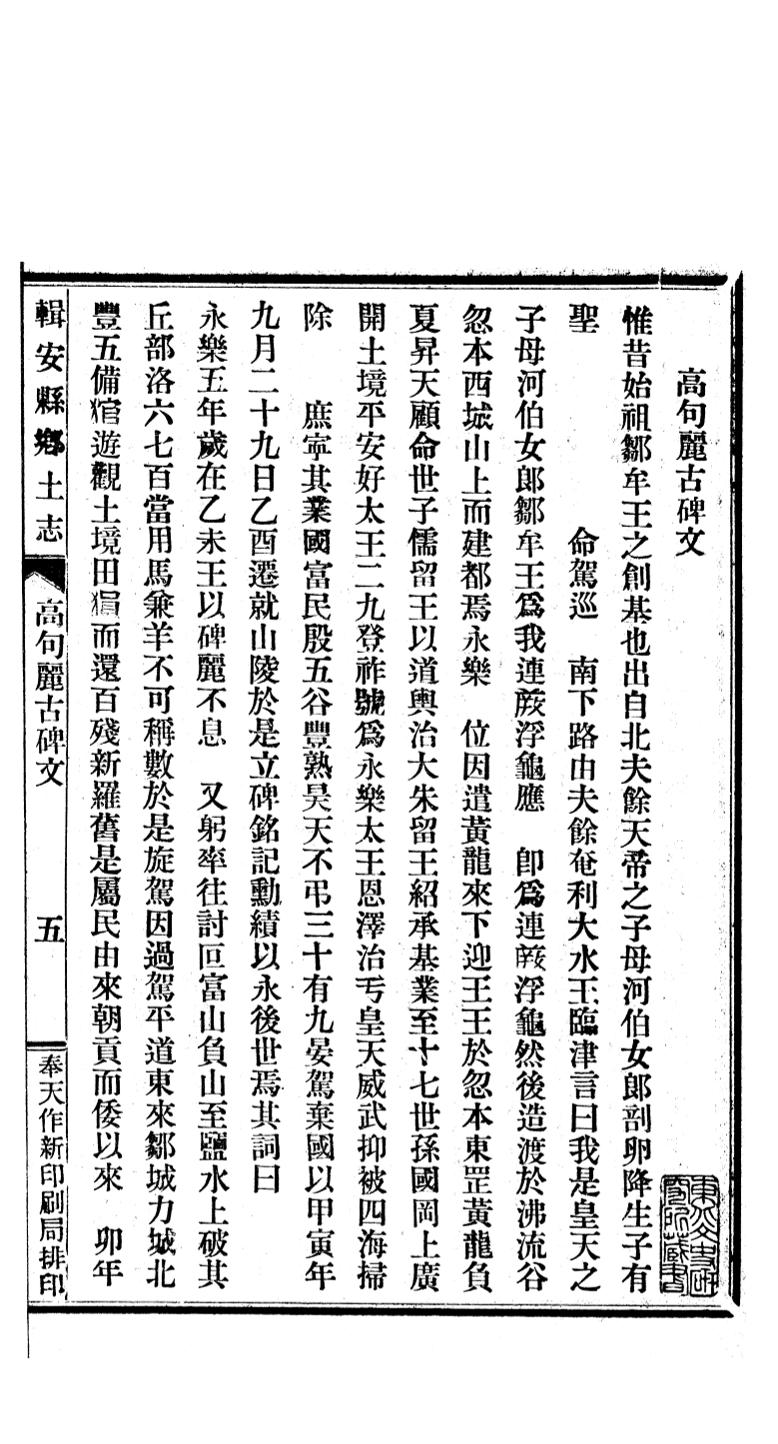 高句麗古碑文
惟昔始祖鄒牟王之創基也出自北夫餘天帝之子母河伯女郎剖卵降生子有
聖　　　　命駕巡　南下路由夫餘奄利大水王臨津言曰我是皇天之
子母河伯女郎鄒牟王爲我連䓲浮龜應　卽爲連䓲浮龜然後造渡於沸流谷
忽本西城山上而建都焉永樂　位因遣黃龍來下迎王王於忽本東罡黃龍負
夏昇天顧命世子儒留王以道輿治大朱留王紹承基業至十七世孫國岡上廣
開土境平安好太王二九登祚號爲永樂太王恩澤治亐皇天威武抑被四海掃
除　　庶寧其業國富民殷五谷豐熟昊天不弔三十有九晏駕棄國以甲寅年
九月二十九日乙酉遷就山陵於是立碑銘記勳績以永後世焉其詞曰
永樂五年歲在乙未王以碑麗不息　又躬率往討叵富山負山至鹽水上破其
丘部洛六七百當用馬兼羊不可稱數於是旋駕因過駕平道東來鄒城力城北
豐五備㹰遊觀土境田而還百殘新羅舊是屬民由來朝貢而倭以來　卯年
輯安縣鄉土志
高句麗古碑文
五
奉天作新印刷局排印